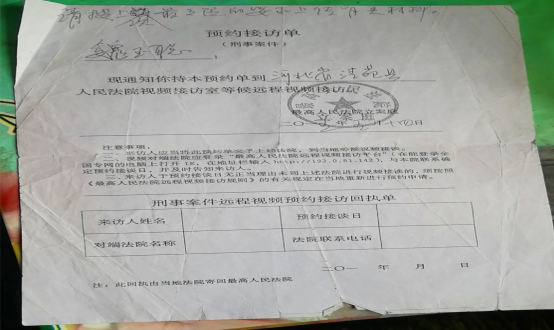 预约接访单
(刑事案件)
现通知你持本预约单到河北省清苑县
人民法院视频接访室等候远程视频接访。
最高人民法院立案庭
二〇一
注意事项:
一、来访人应当将此预约单交予上述法院,到当地等候视频接谈。
视频对端法院应登录“最高人民法院远程视频接访平台”(在能登录全
国专网的电脑上打开 IE,在地址栏输入 http://192.0.81.142),与本院联系确
定预约接谈日,并及时告知来访人。
二、来访人于预约接谈日无正当理由未到上述法院进行视频接谈的,须按照
《最高人民法院远程视频接访规则》的有关规定在当地重新进行预约申请。
刑事案件远程视频预约接访回执单
来访人姓名 预约接谈日
对端法院名称 法院联系电话
二〇一 年 月 日
注:此回执由当地法院寄回最高人民法院